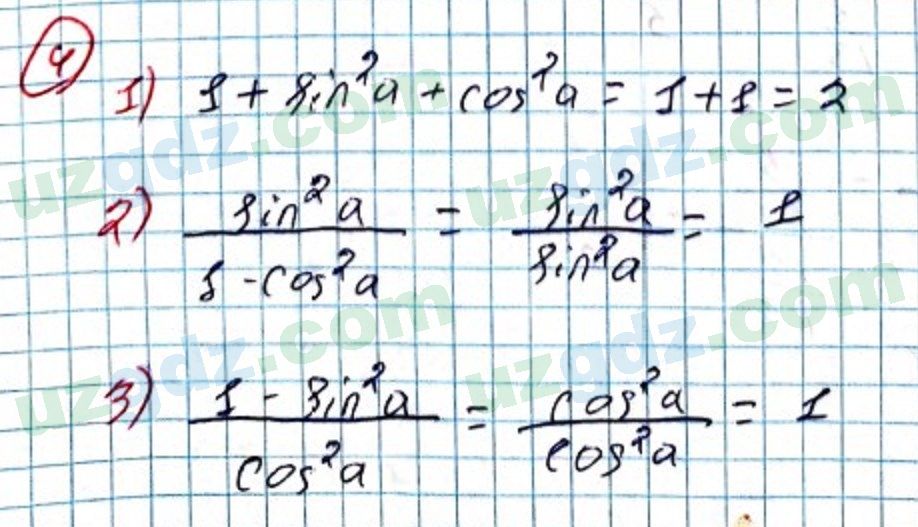 4
1) 1 + sin²a + cos²a = 1 + 1 = 2
2) sin²a / 1 - cos²a = sin²a / sin²a = 1
3) 1 - sin²a / cos²a = cos²a / cos²a = 1
uzgdz.com
uzgdz.com
uzgdz.com
uzgdz.com
uzgdz.com